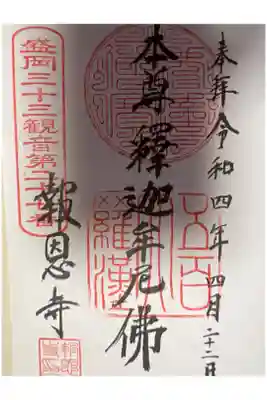 奉拝 令和四年四月二十二日
本尊釋迦牟尼佛
五百
羅漢
報恩寺
盛岡三十三観音第